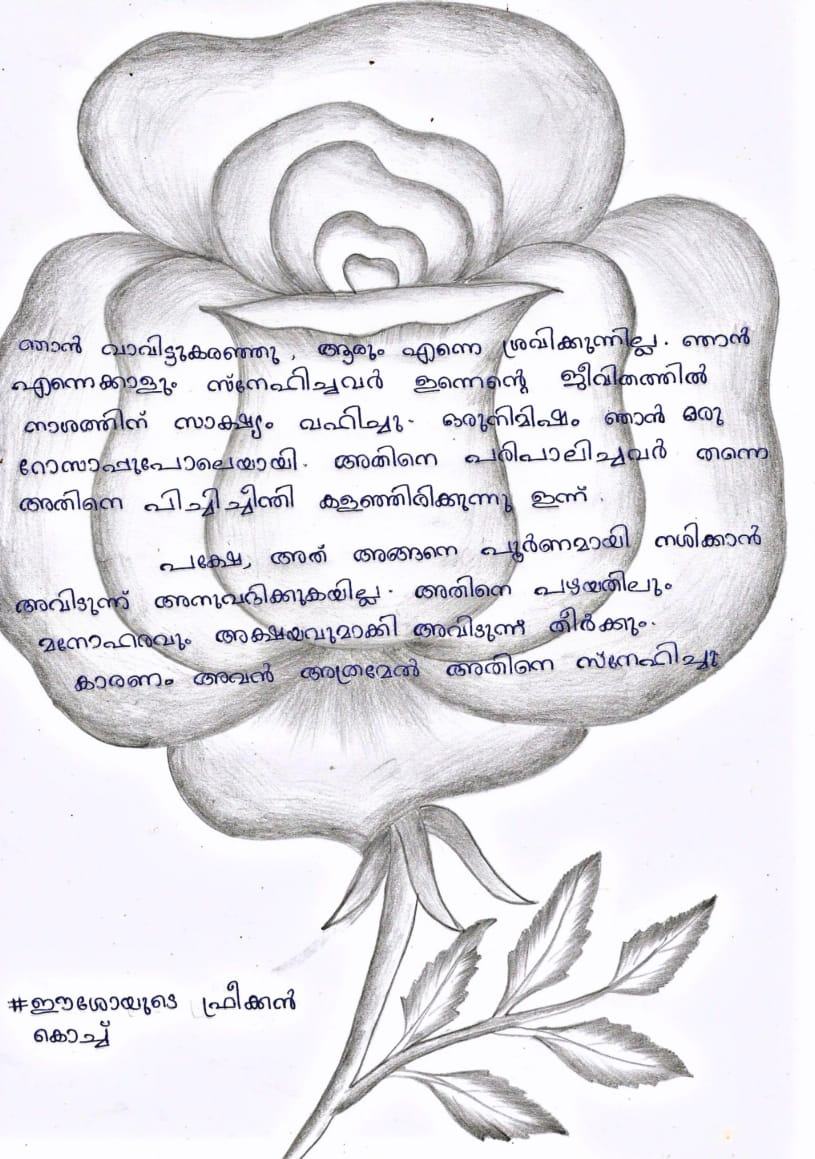 ഞാൻ വാവിട്ടുകരഞ്ഞു, ആരും എന്നെ ശ്രവിക്കുന്നില്ല. ഞാൻ
എന്നെക്കാളും സ്നേഹിച്ചവർ ഇന്നെന്റെ ജീവിതത്തിൽ
നാശത്തിന് സാക്ഷ്യം വഹിച്ചു. ഒരുനിമിഷം ഞാൻ ഒരു
റോസാപ്പൂപോലെയായി. അതിനെ പരിപാലിച്ചവർ തന്നെ
അതിനെ പിച്ചിച്ചീന്തി കളഞ്ഞിരിക്കുന്നു ഇന്ന്.
പക്ഷേ, അത് അങ്ങനെ പൂർണമായി നശിക്കാൻ
അവിടുന്ന് അനുവദിക്കുകയില്ല. അതിനെ പഴയതിലും
മനോഹരവും അക്ഷയവുമാക്കി അവിടുന്ന് തീർക്കും.
കാരണം അവൻ അത്രമേൽ അതിനെ സ്നേഹിച്ചു
#ഈശോയുടെ ഫ്രീക്കൻ
കൊച്ച്